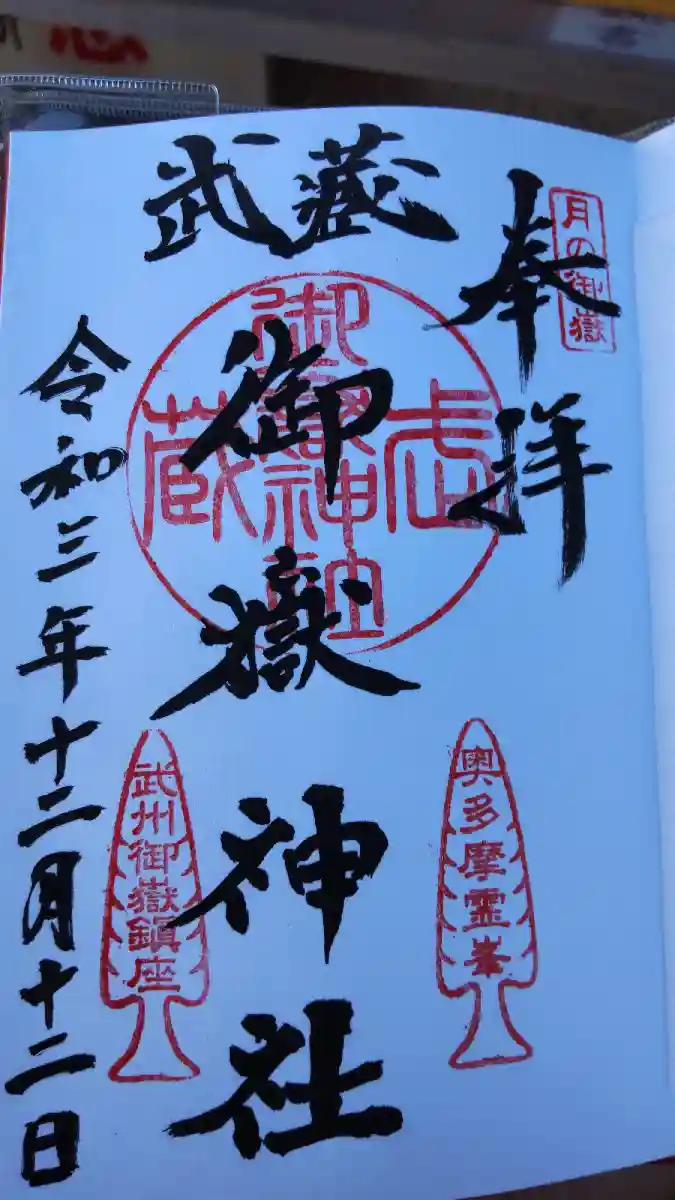 月の御嶽
奉拝
武蔵
御嶽神社
武蔵
御嶽神社
奥多摩霊峯
武州御嶽鎮座
令和三年十二月十二日